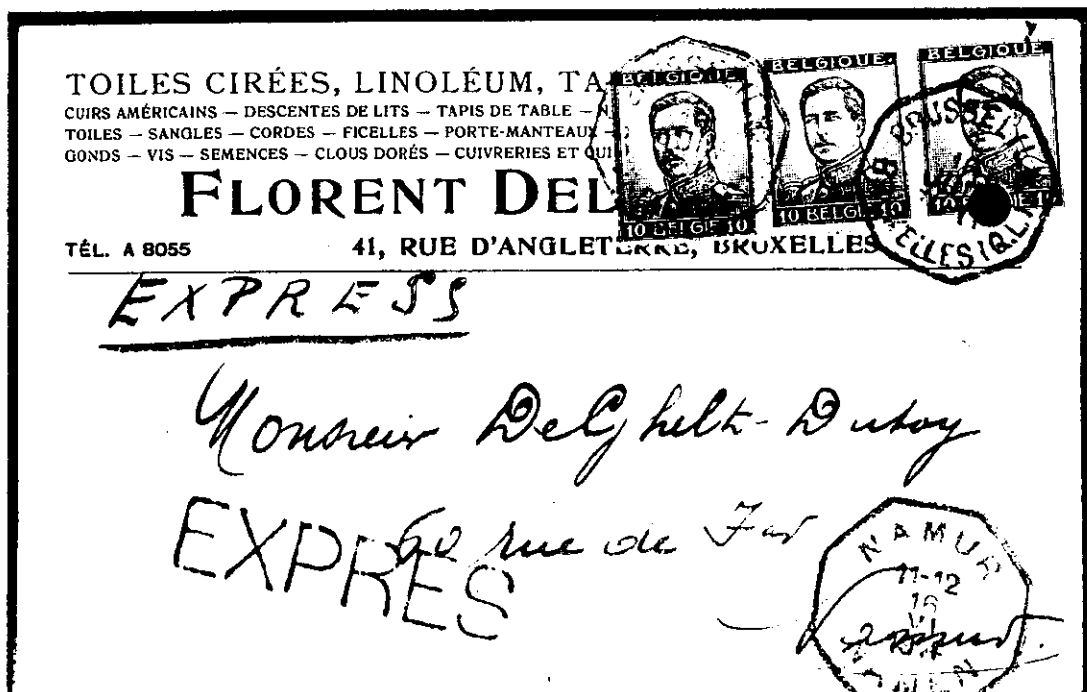 TOILES CIRÉES, LINOLÉUM, TA
CUIRS AMÉRICAINS — DESCENTES DE LITS — TAPIS DE TABLE — N
TOILES — SANGLES — CORDES — FICELLES — PORTE-MANTEAUX —
GONDS — VIS — SEMENCES — CLOUS DORÉS — CUIVRERIES ET QUI
FLORENT DEL
TÉL. A 8055 41, RUE D'ANGLETERRE, BRUXELLES
BELGIQUE BELGIQUE BELGIQUE
10 BELGIE 10 10 BELGIE 10
EXPRESS
Monsieur
60 rue de
EXPRES
NAMUR
11-12
16
VI
NAMEN